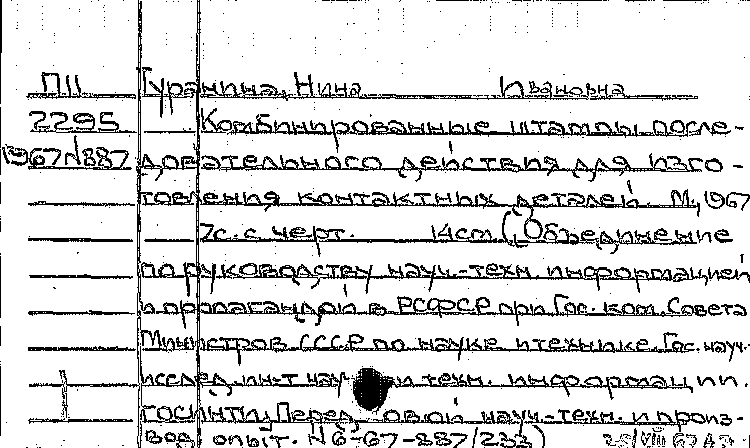 ПII Гуранина, Нина Ивановна
2295 Комбинированные штампы после-
1967N887 довательного действия для изго-
товления контактных деталей. М., 1967
7с. с черт. 14см. (Объединение
по руководству науч.-техн. информацией
и пропагандой в РСФСР при Гос. ком. Совета
Министров СССР по науке и технике. Гос. науч.-
исслед. ин-т науч. и техн. информации.
ГОСИНТИ. Перед овой науч.-техн. и произ-
вод. опыт. N 6-67-887/233)